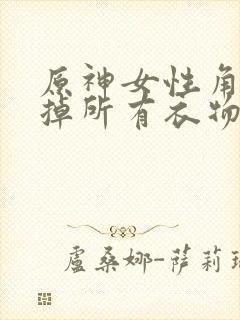 原神女性角
掉所有衣物
盧桑娜-薩莉